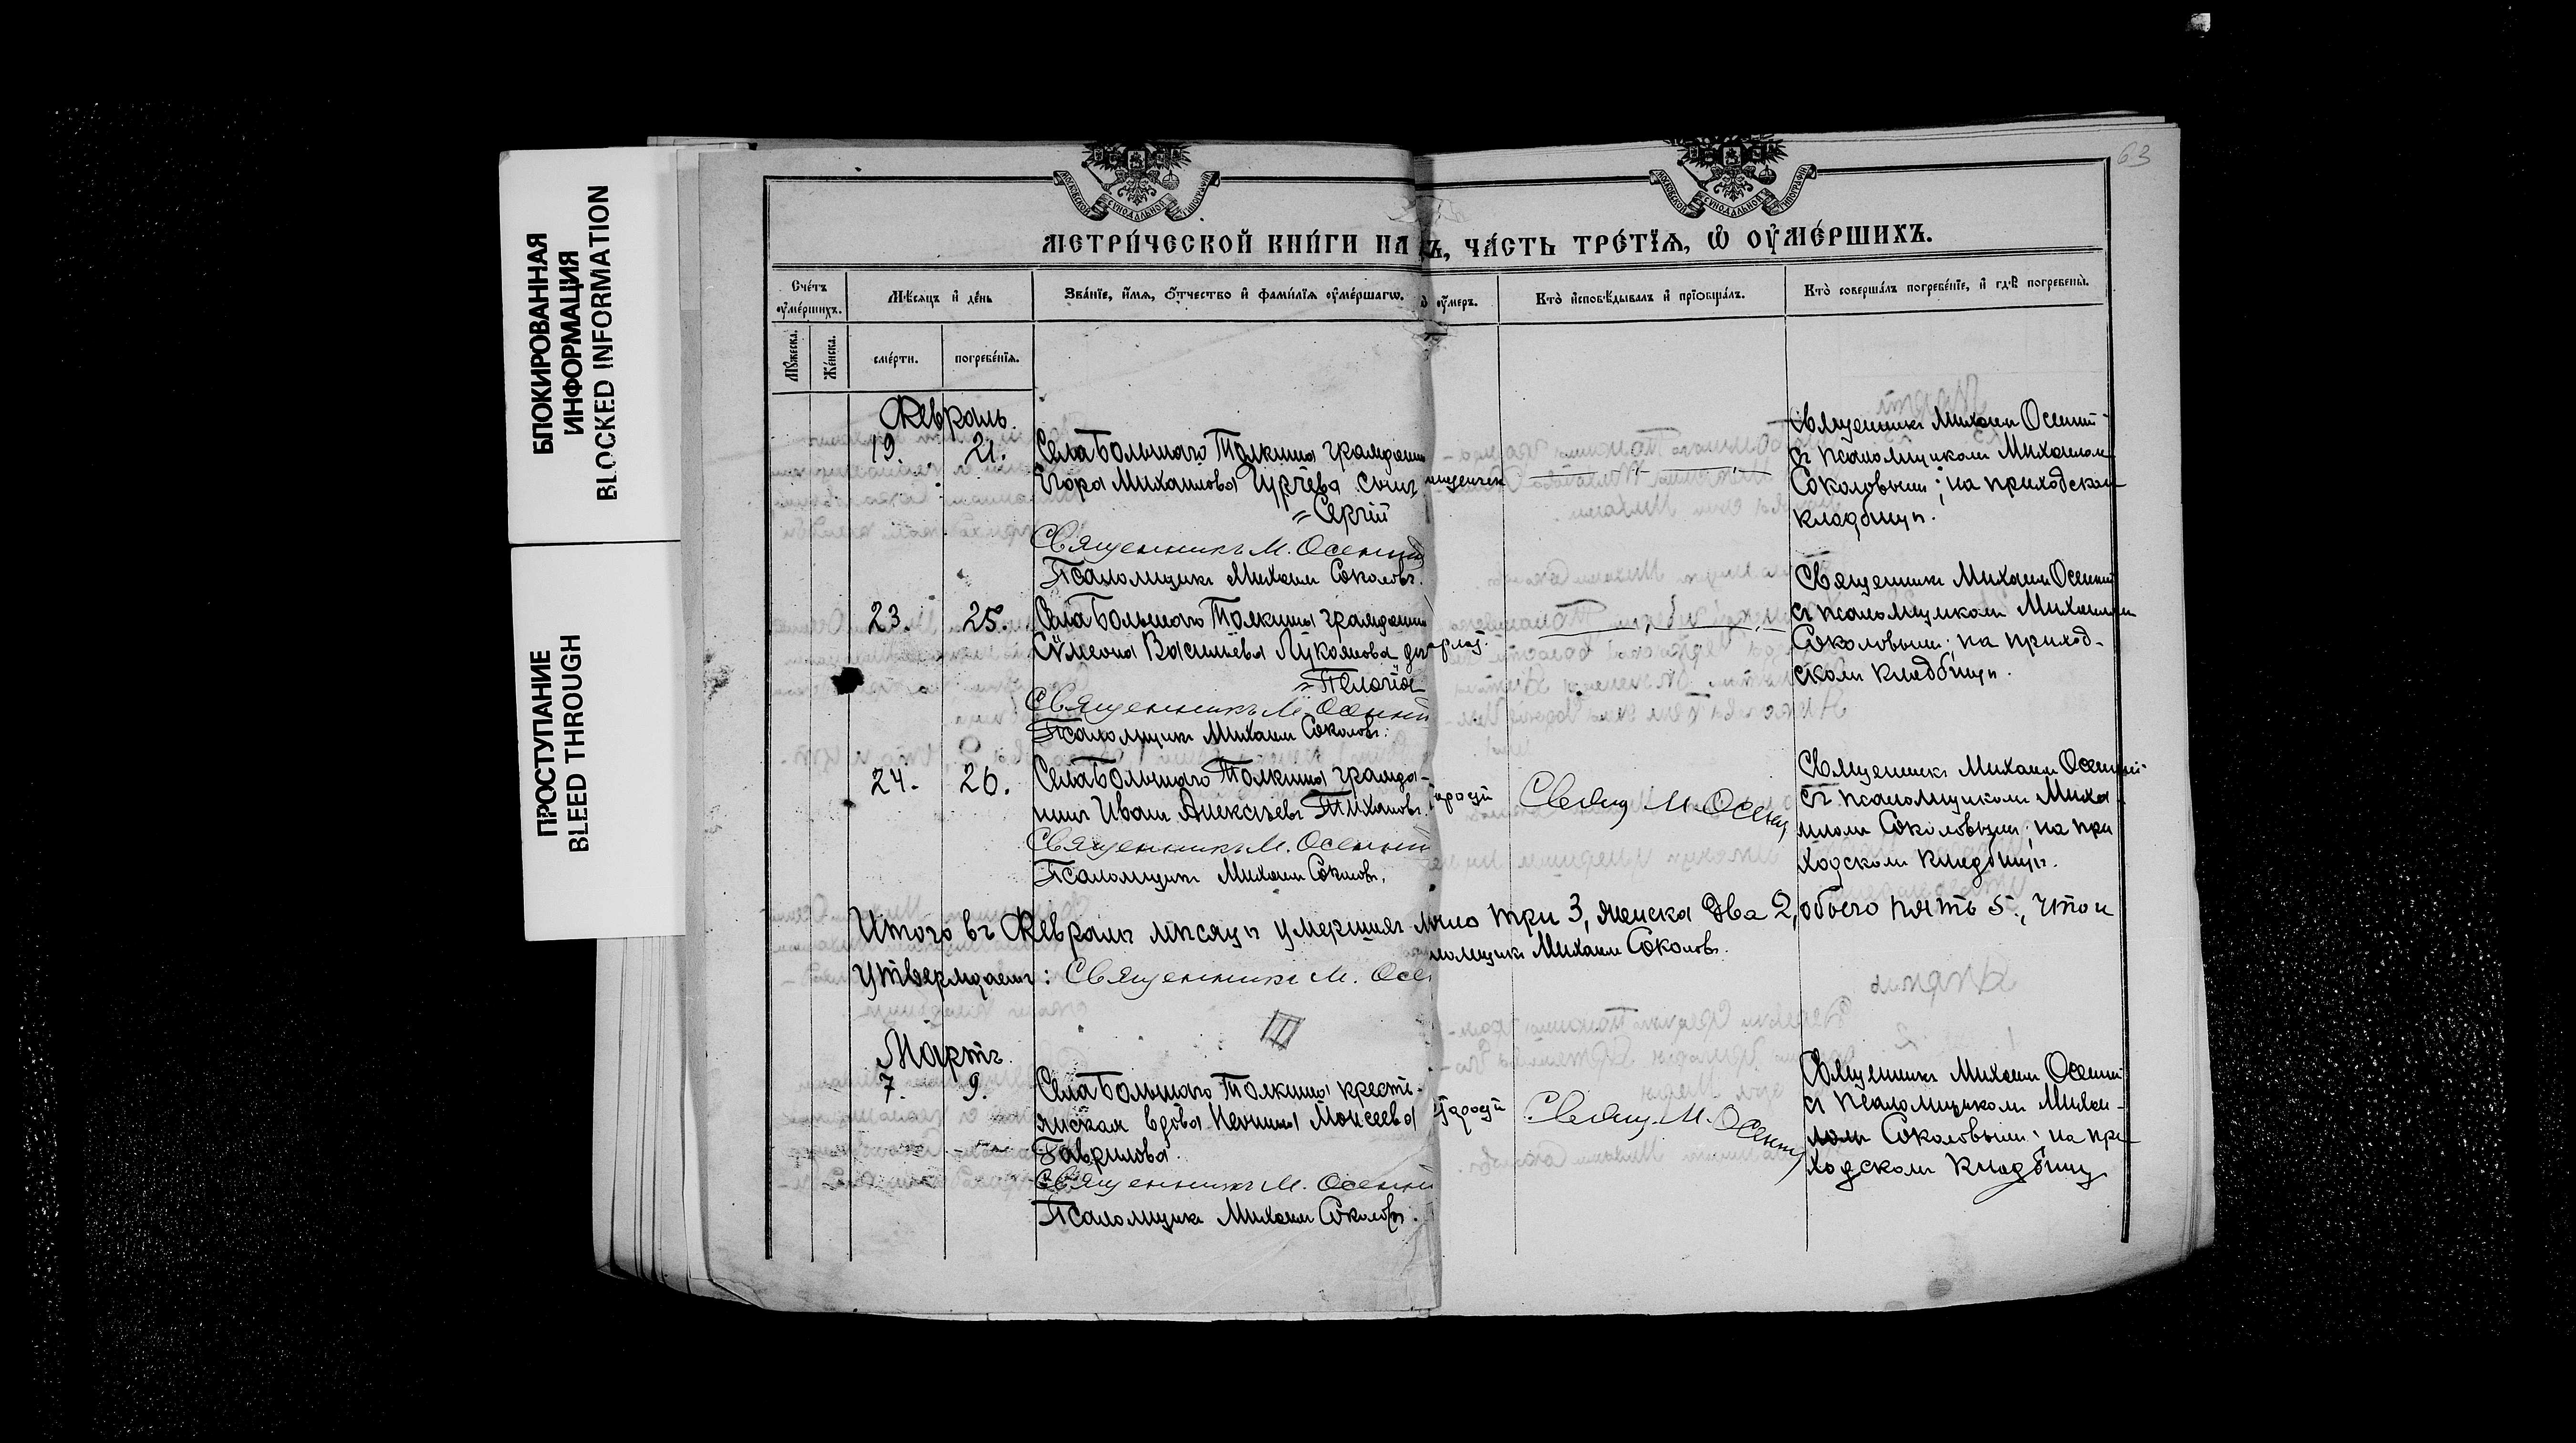 63
БЛОКИРОВАННАЯ
ИНФОРМАЦИЯ
BLOCKED INFORMATION
ПРОСТУПАНИЕ
BLEED THROUGH
МОСКОВСКОЙ СѴНОДАЛЬНОЙ ТИПОГРАФІИ
МОСКОВСКОЙ СѴНОДАЛЬНОЙ ТИПОГРАФІИ
МЕТРИ́ЧЕСКОЙ КНИ́ГИ НА
Ъ, ЧА́СТЬ ТРЕ́ТЇѦ, Ѡ҆ ОУ҆МЕ́РШИХЪ.
Сче́тъ
оу҆ме́ршихъ.
Мѣ́сѧцъ и҆ де́нь
Зва́нїе, и҆́мѧ, ѻ҆́тчество и҆ фами́лїѧ оу҆ме́ршагѡ.
оу҆́меръ.
Кто̀ и҆сповѣ́дывалъ и҆ прїѡбща́лъ.
Кто̀ соверша́лъ погребе́нїе, и҆ гдѣ̀ погребены̀.
Мꙋ́жеска.
Же́нска.
сме́рти.
погребе́нїѧ.
Февраль.
19. 21. Села Большаго Толкиша гражданина
Егора Михаилова Гурчева сынъ
= Сергій
Священникъ М. Осенній
Псаломщикъ Михаилъ Соколовъ.
Священникъ Михаилъ Осенній
съ псаломщикомъ Михаиломъ
Соколовымъ; на приходскомъ
кладбищѣ.
23. 25. Села Большаго Толкиша гражданина
Сѵмеона Васильева Лукоянова
= Пелагія
Священникъ М. Осенній
Псаломщикъ Михаилъ Соколовъ.
Священникъ Михаилъ Осенній
съ псаломщикомъ Михаиломъ
Соколовымъ; на приход-
скомъ кладбищѣ.
24. 26. Села Большаго Толкиша гражда-
нинъ Иванъ Алексѣевъ Тихановъ.
Священникъ М. Осенній
Псаломщикъ Михаилъ Соколовъ.
Свящ. М. Осенн
Священникъ Михаилъ Осенній
съ псаломщикомъ Миха
иломъ Соколовымъ; на при
ходскомъ кладбищѣ.
Итого въ Февралѣ мѣсяцѣ умершихъ три 3, женска два 2, обоего пять 5., что и
утверждаемъ: Священникъ М. Осе
ломщикъ Михаилъ Соколовъ.
III
Мартъ.
7. 9. Села Большаго Толкиша кресть-
янская вдова Моисеева
Гаврилова.
Священникъ М. Осенній
Псаломщикъ Михаилъ Соколовъ.
Свящ. М. Осенн
Священникъ Михаилъ Осенній
съ псаломщикомъ Михаи-
ломъ Соколовымъ; на при
ходскомъ кладбищ